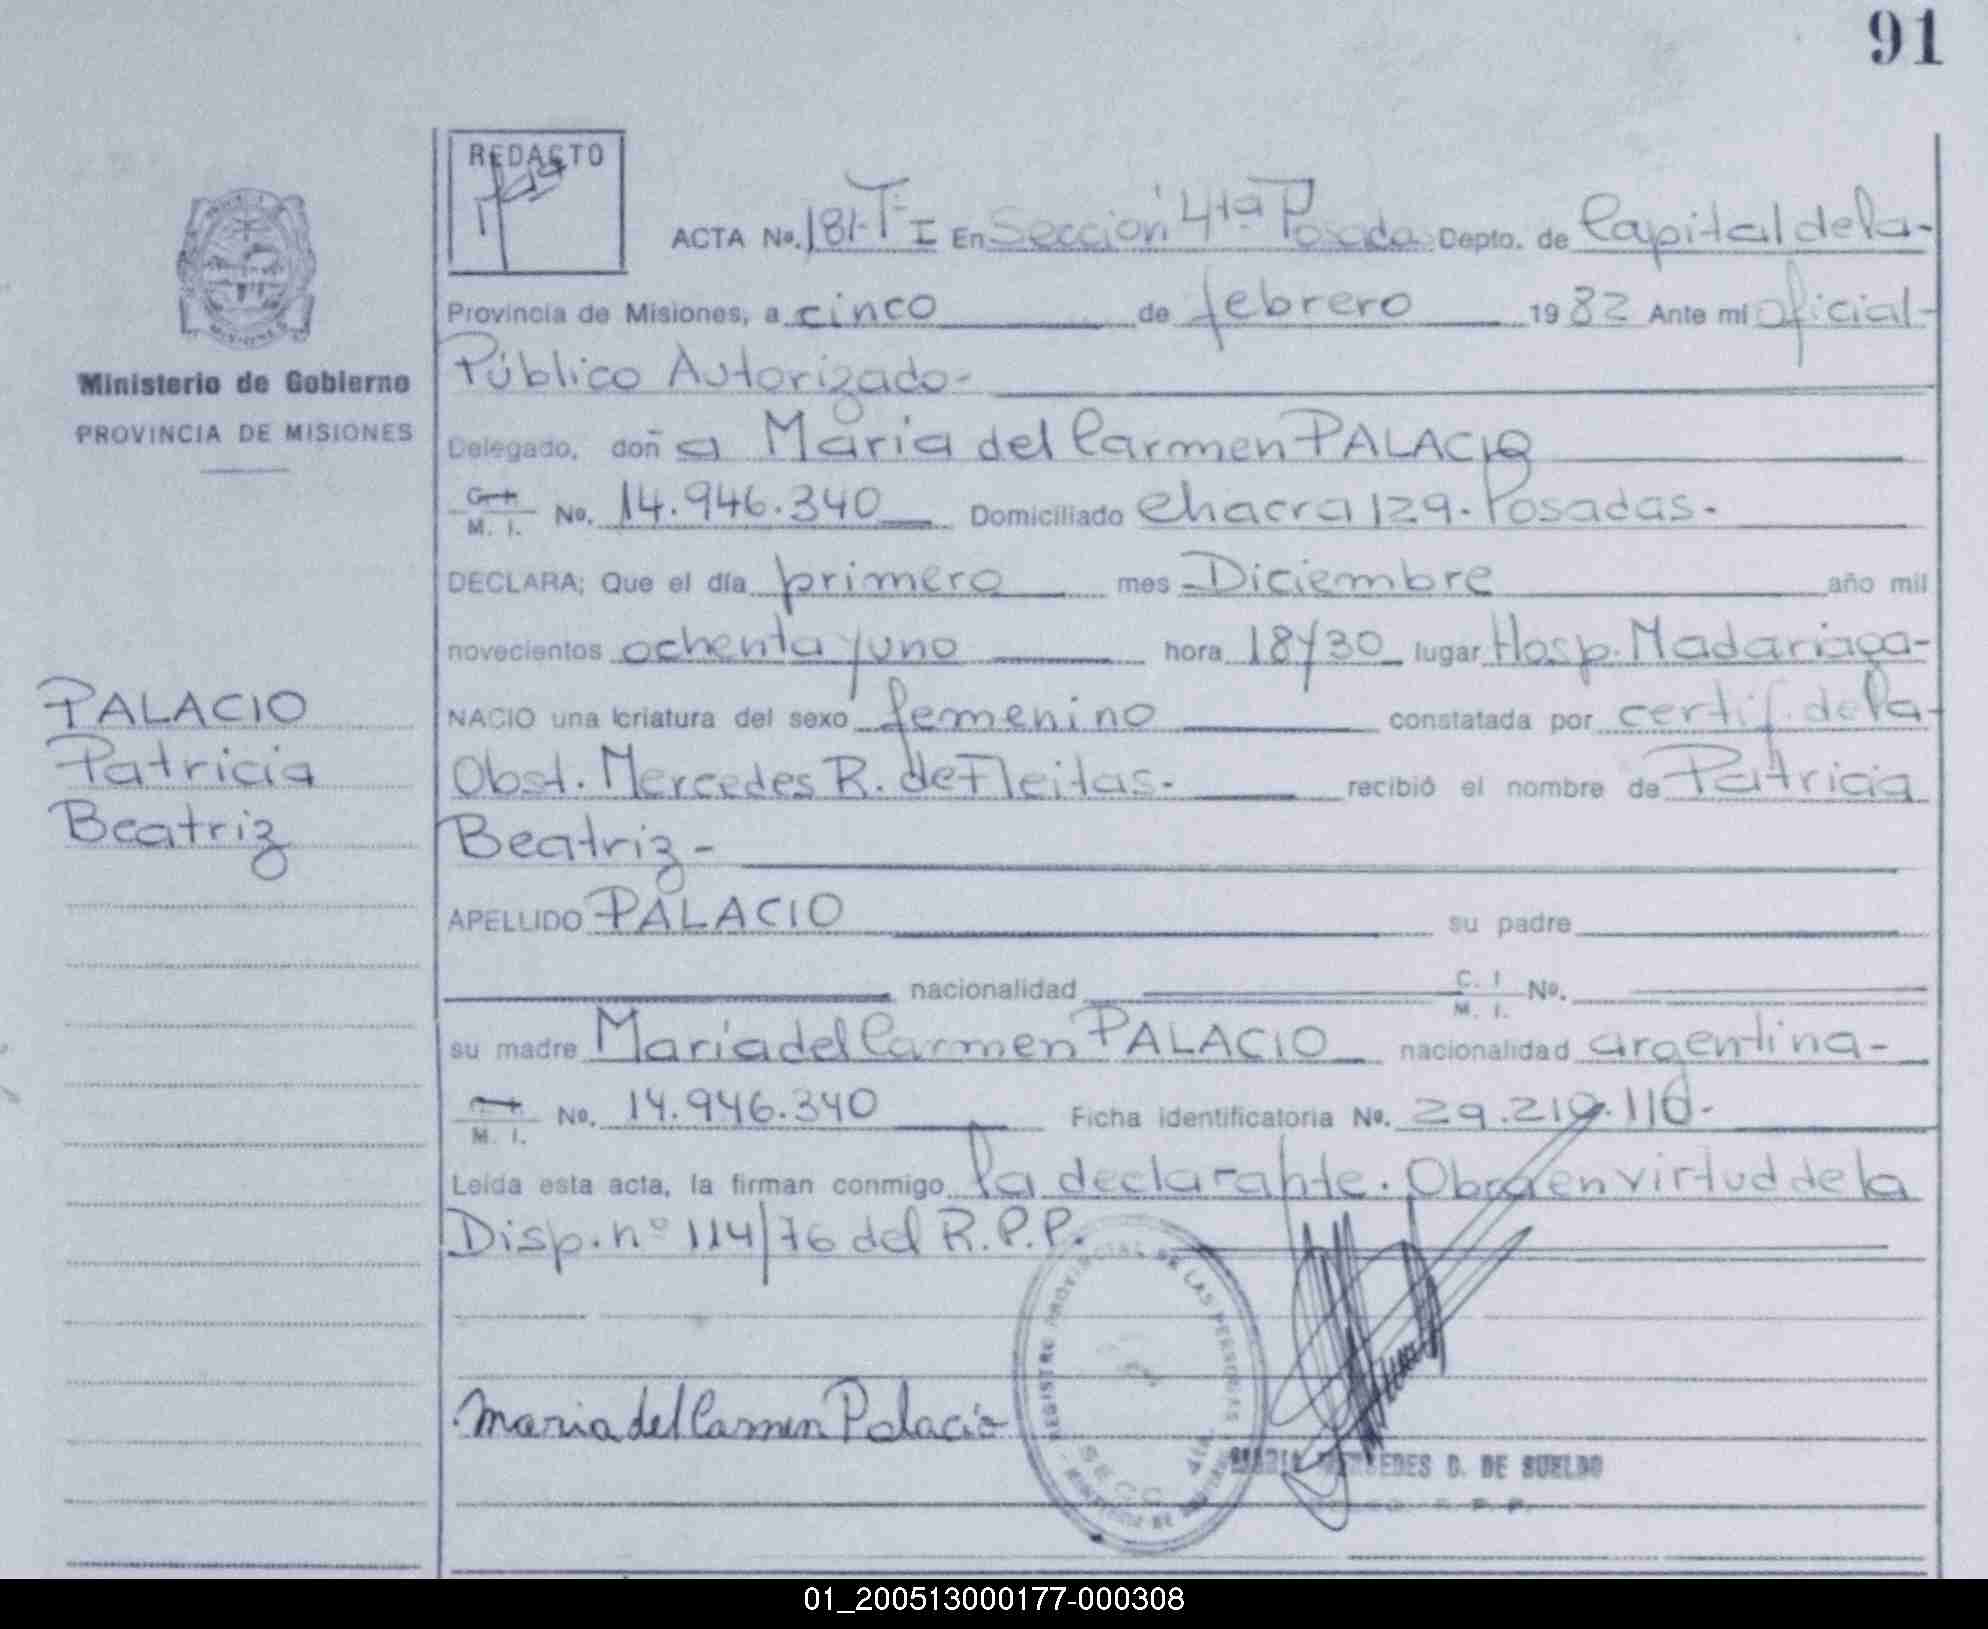 91
REDACTO
ACTA No. 181-Tº I En Sección 4ta Posadas Depto. de Capital de la-
Provincia de Misiones, a cinco de febrero 1982 Ante mi oficial-
Público Autorizado-
Ministerio de Gobierno
PROVINCIA DE MISIONES
Delegado, doña María del Carmen PALACIO
M. I. No. 14.946.340 Domiciliado Chacra 129. Posadas.
DECLARA; Que el día primero mes Diciembre año mil
novecientos ochenta y uno hora 18y30 lugar Hosp. Madariaga-
PALACIO
Patricia
Beatriz
NACIO una criatura del sexo femenino constatada por certif. de la-
Obst. Mercedes R. de Fleitas. recibió el nombre de Patricia
Beatriz-
APELLIDO PALACIO su padre
nacionalidad C. I M. I. No.
su madre María del Carmen PALACIO nacionalidad argentina-
M. I. No. 14.946.340 Ficha identificatoria No. 29.210.116.
Leída esta acta, la firman conmigo la declarante. Obra en virtud de la
Disp. nº 114/76 del R.P.P.
REGISTRO PROVINCIAL DE LAS PERSONAS
SECC. 4ta.
Maria del Carmen Palacio
MARIA MERCEDES D. DE SUELDO
R. P. P.
01_200513000177-000308